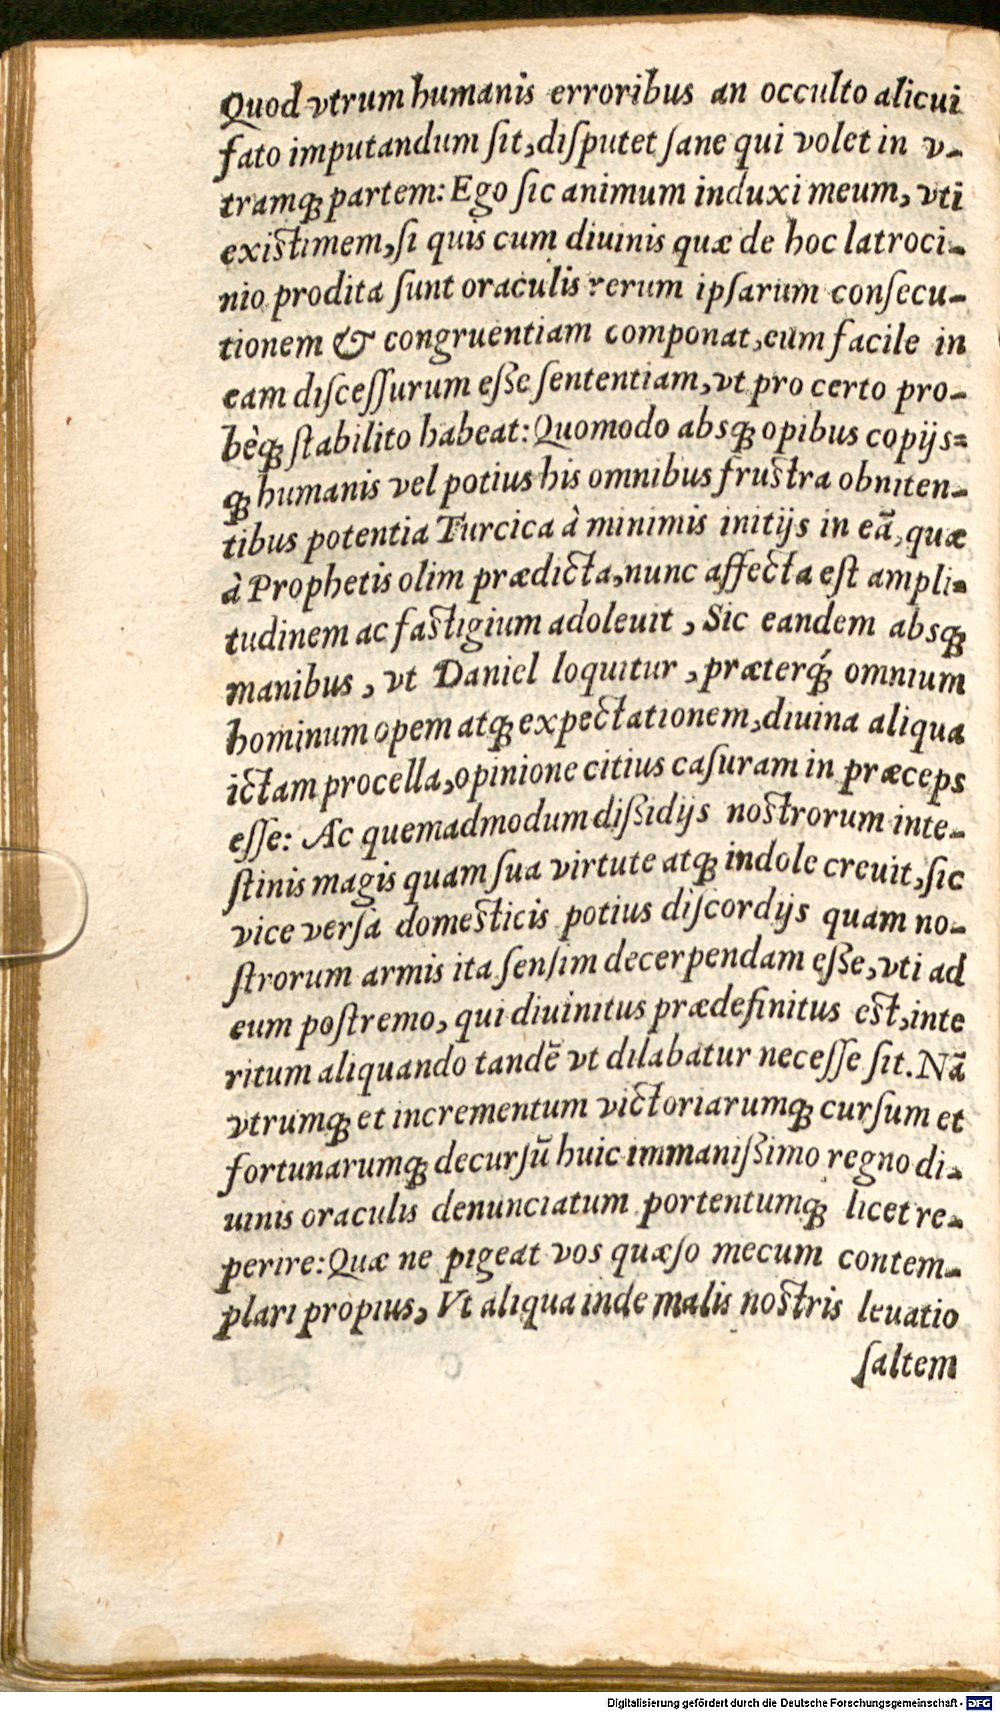 Quod vtrum humanis erroribus an occulto alicui
fato imputandum ſit, diſputet ſane qui volet in v-
tramq; partem: Ego ſic animum induxi meum, vti
exiſtimem, ſi quis cum diuinis quæ de hoc latroci-
nio prodita ſunt oraculis rerum ipſarum conſecu-
tionem & congruentiam componat, eum facile in
eam diſceſſurum eſſe ſententiam, vt pro certo pro-
bèq; ſtabilito habeat: Quomodo absq; opibus copijs=
q; humanis vel potius his omnibus fruſtra obniten-
tibus potentia Turcica à minimis initijs in eã, quæ
à Prophetis olim prædicta, nunc affecta eſt ampli-
tudinem ac faſtigium adoleuit, Sic eandem absq;
manibus, vt Daniel loquitur, præterq́; omnium
hominum opem atq; expectationem, diuina aliqua
ictam procella, opinione citius caſuram in præceps
eſſe: Ac quemadmodum dißidijs noſtrorum inte-
ſtinis magis quam ſua virtute atq; indole creuit, ſic
vice verſa domeſticis potius diſcordijs quam no-
ſtrorum armis ita ſenſim decerpendam eſſe, vti ad
eum poſtremo, qui diuinitus prædefinitus eſt, inte
ritum aliquando tandẽ vt dilabatur neceſſe ſit. Nã
vtrumq; et incrementum victoriarumq; curſum et
fortunarumq; decurſũ huic immanißimo regno di-
uinis oraculis denunciatum portentumq; licet re-
perire: Quæ ne pigeat vos quæſo mecum contem-
plari propius, Vt aliqua inde malis noſtris leuatio
ſaltem
Digitalisierung gefördert durch die Deutsche Forschungsgemeinschaft - DFG